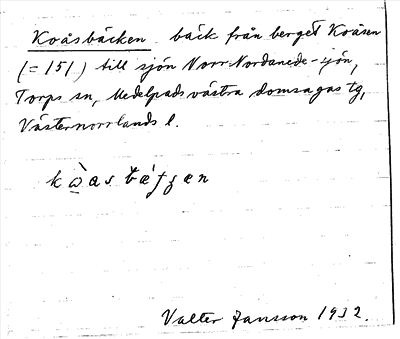 Koåsbäcken bäck från berget Koåsen
(= 151) till sjön Norr Nordanede-sjön,
Torps sn, Medelpads västra domsagas tg,
Västernorrlands l.
Valter Jansson 1932.